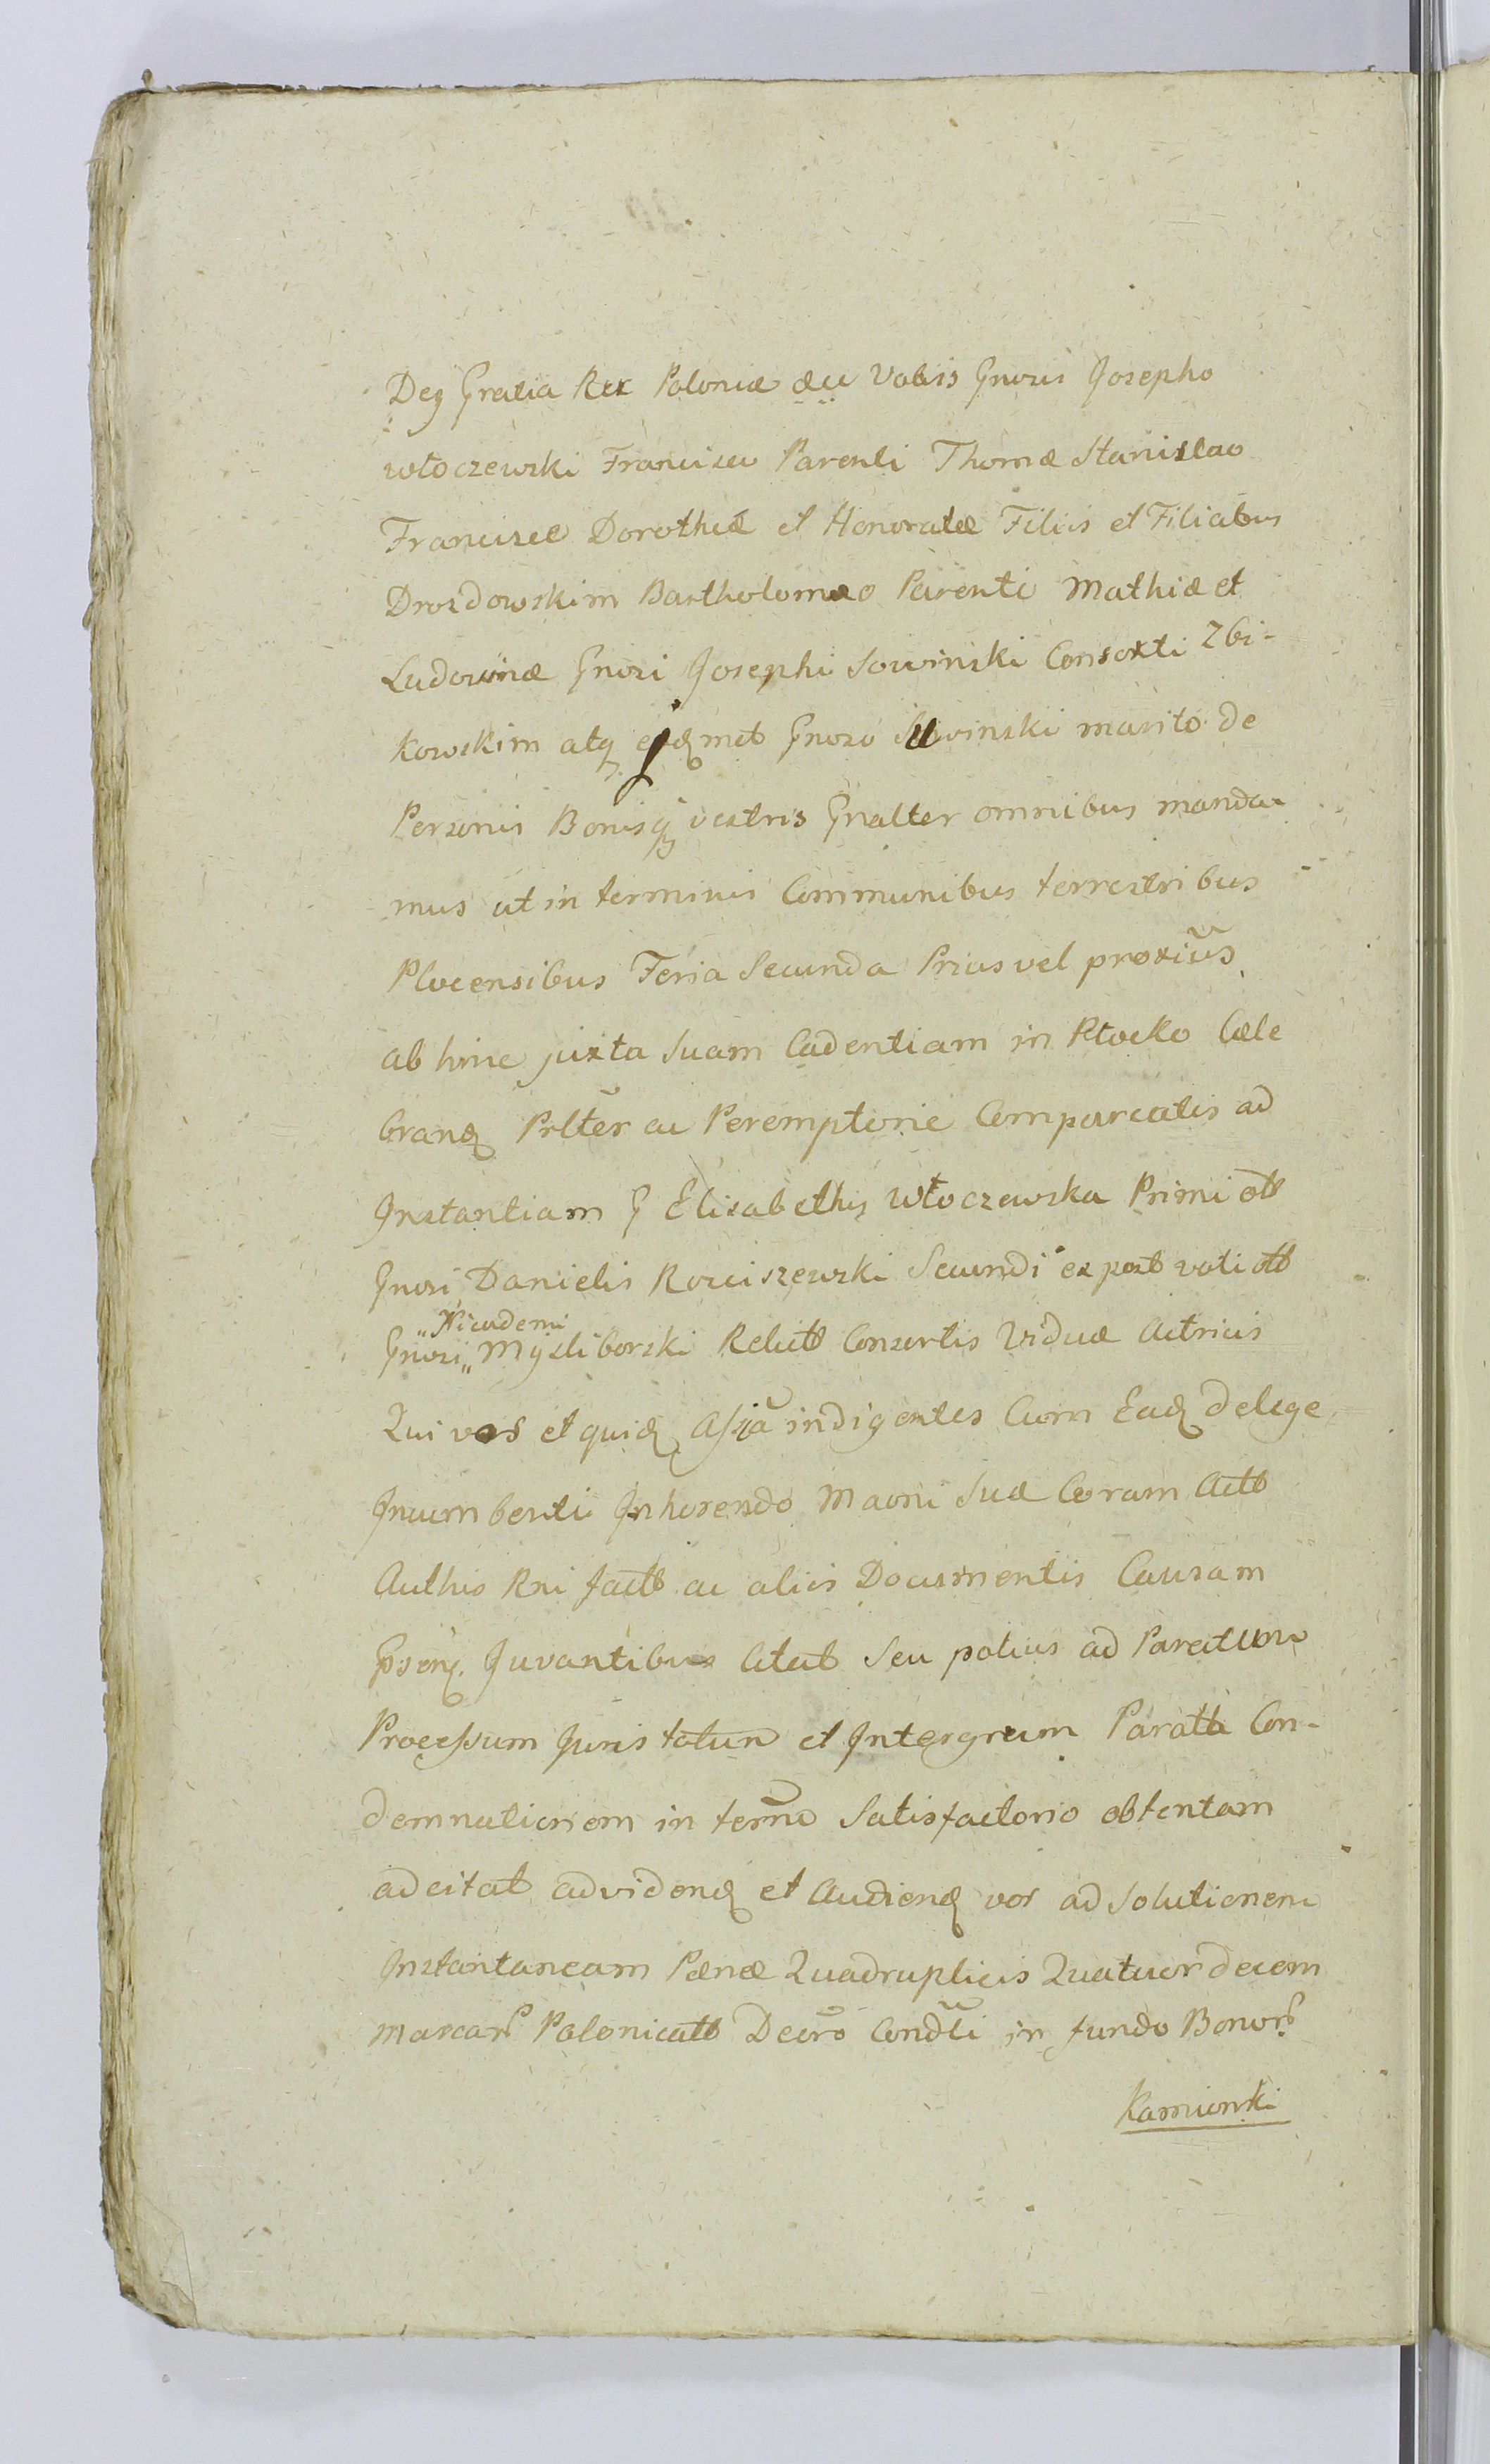 Dei Gratia Rex Poloniæ &cc Vobis Gnosis Josepho
Włoczewski Francisco Parenti Thomæ Stanislao
Franciscæ Dorotheæ et Honoratæ Filiis et Filiabus
Drozdowskim Bartholomæo Parenti Mathiæ et
Ludovinæ Gnosi Josephi Sowinski Consorti Zbi-
kowskim atq ejdmet Gnoso Suvinski marito de
Personis Bonisq vestris Gnalter omnibus manda-
mus ut in terminis Communibus terrestribus
Plocensibus Feria Secunda Prius vel proxius
ab hinc juxta Suam Cadentiam in Płocko Cæle
brand Prlter ac Peremptorie Compareatis ad
Instantiam G Elisabethæ Włoczewska Primi ott
Gnosi Danielis Rosciszewski Secundi ex post voti ott
„Nicodemi
Gnosi „ Mysliborski Relict Consortis Viduæ Actricis
Qui vos et quid Assa indigentes Cum Ead de lege
Incumbenti Inhærendo Maoni Suæ Coram Act
Authis Rni fact ac aliis Documentis Causam
Gpsend. Juvantibus Citat Seu potius ad Paratum
Processum Juris totum et Intergrum Paratt Con-
demnationem in termo Satisfactorio obtentam
adcitat ad vidend et Audiend vos ad Solutionem
Instantaneam Pænæ Quadruplicis Quatuordecem
marcar Polonicatt Decro Condti in fundo Bonor
Kamionki